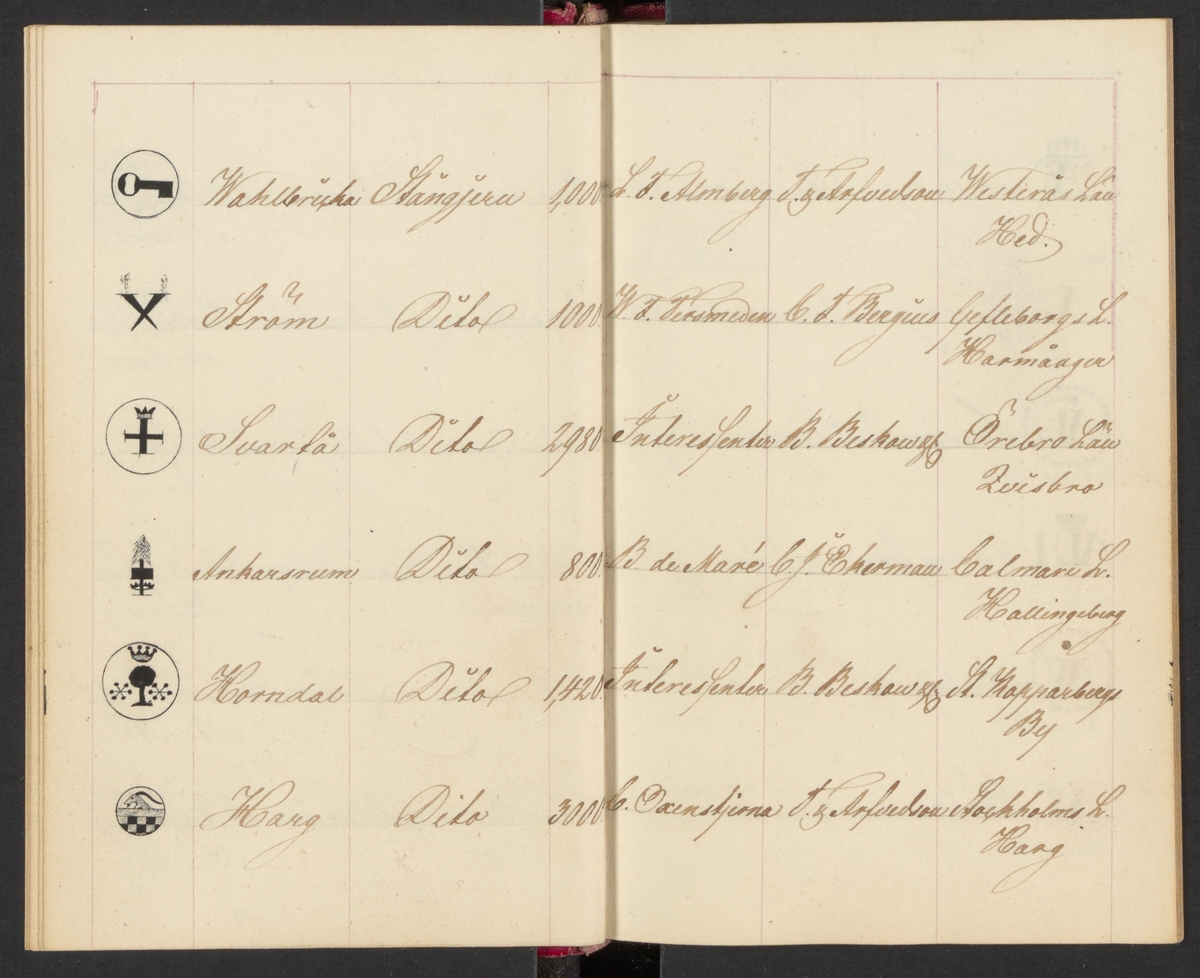 Wahlbrücka Stångjern 1,000 L. F. Almberg T. & Arfvedson Westerås Län
Hed.
Ström Dito 1000. W. F. Tersmeden C. F. Bergius Gefleborgs L.
Harmånger
Svartå Dito 2980 Interessenter B. Beskow Örebro Län
Qvisbro
Ankarsrum Dito 800. B de Maré C. J. Ekerman Calmare L.
Hallingeberg
Horndal Dito 1,420 Interessenter B. Beskow St. Kopparbergs
By
Harg Dito 3000 C. Oxenstjerna T. & Arfvedson Stockholms L.
Harg